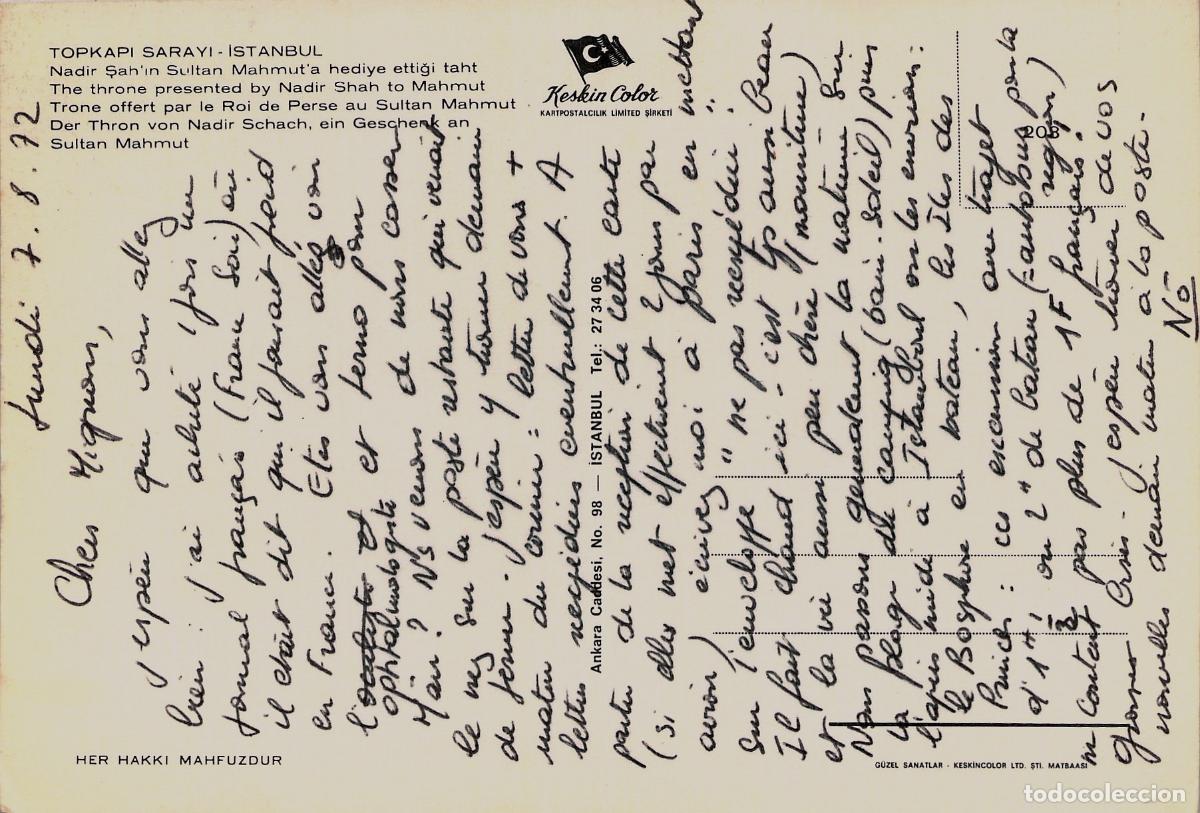 TOPKAPI SARAYI - İSTANBUL
Nadir Şah'ın Sultan Mahmut'a hediye ettiği taht
The throne presented by Nadir Shah to Mahmut
Trone offert par le Roi de Perse au Sultan Mahmut
Der Thron von Nadir Schach, ein Geschenk an
Sultan Mahmut
Keskin Color
KARTPOSTALCILIK LIMITED ŞİRKETİ
208
Ankara Caddesi, No. 98 — İSTANBUL Tel.: 27 34 06
HER HAKKI MAHFUZDUR
GÜZEL SANATLAR - KESKİNCOLOR LTD. ŞTİ. MATBAASI
lundi 7.8.72
Chers Mignons,
J'espère que vous allez
bien. J'ai acheté 1 fois un
journal français (France Soir) où
il était dit qu'il faisait froid
en France. Etes vous allés voir
l'oculiste et
ophtalmologiste et
Main ? Ns venons de nous casser
le nez sur la poste restante qui venait
de fermer. J'espère y trouver demain
matin du courrier = lettre de vous +
lettres réexpédiées éventuellement. A
partir de la réception de cette carte
(si elle met effectivement 2 jours par
avion) écrivez moi à Paris en mettant
sur l'enveloppe "ne pas réexpédier".
Il fait chaud ici - c'est tjs aussi beau
et la vie aussi peu chère (nourriture)
Nous passons généralement la matinée sur
la plage du camping (bain-soleil) puis
l'après midi à Istamboul ou les environs :
le Bosphore en bateau, les Iles des
Princes : ces excursions au trajet
d'1H, ou 2H de bateau (= autobus pour la région)
ne coûtent pas plus de 1F français !
Grosses bises - J'espère trouver de vos
nouvelles demain matin à la poste -
NÖ
todocoleccion